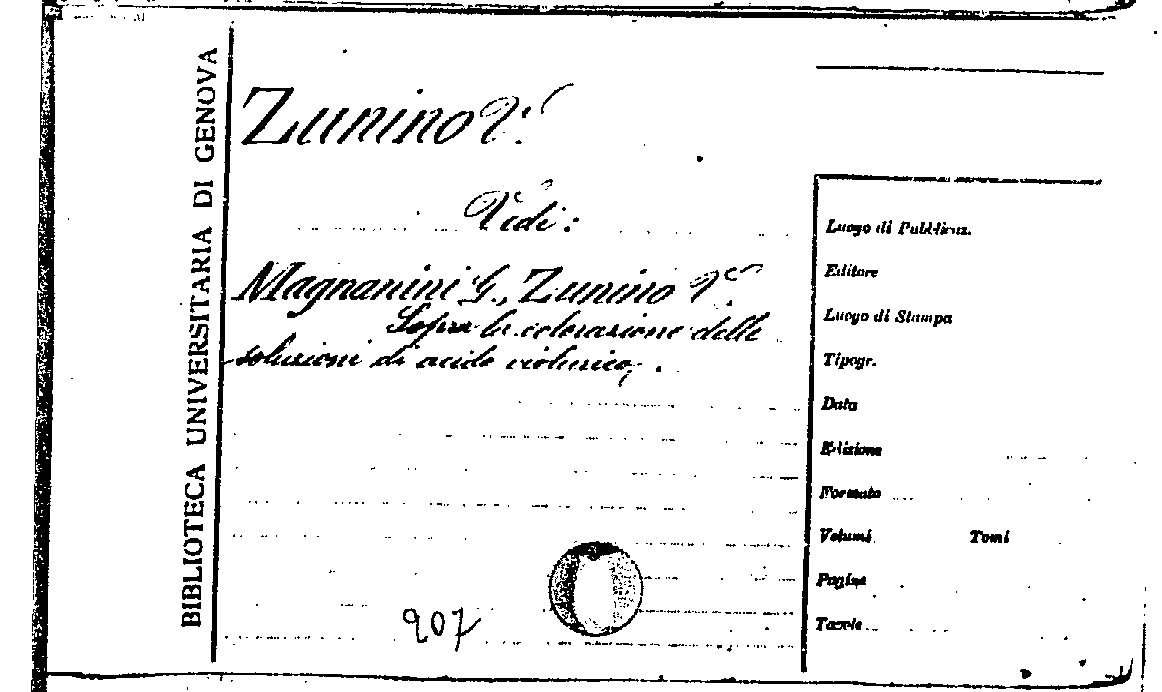 BIBLIOTECA UNIVERSITARIA DI GENOVA
Zunino V.
Vedi:
Magnanini G., Zunino V.
Sopra la colorazione delle
soluzioni di acido violurico, .
907
Luogo di Pubblicaz.
Editore
Luogo di Stampa
Tipogr.
Data
Edizione
Formato
Volumi Tomi
Pagine
Tavole